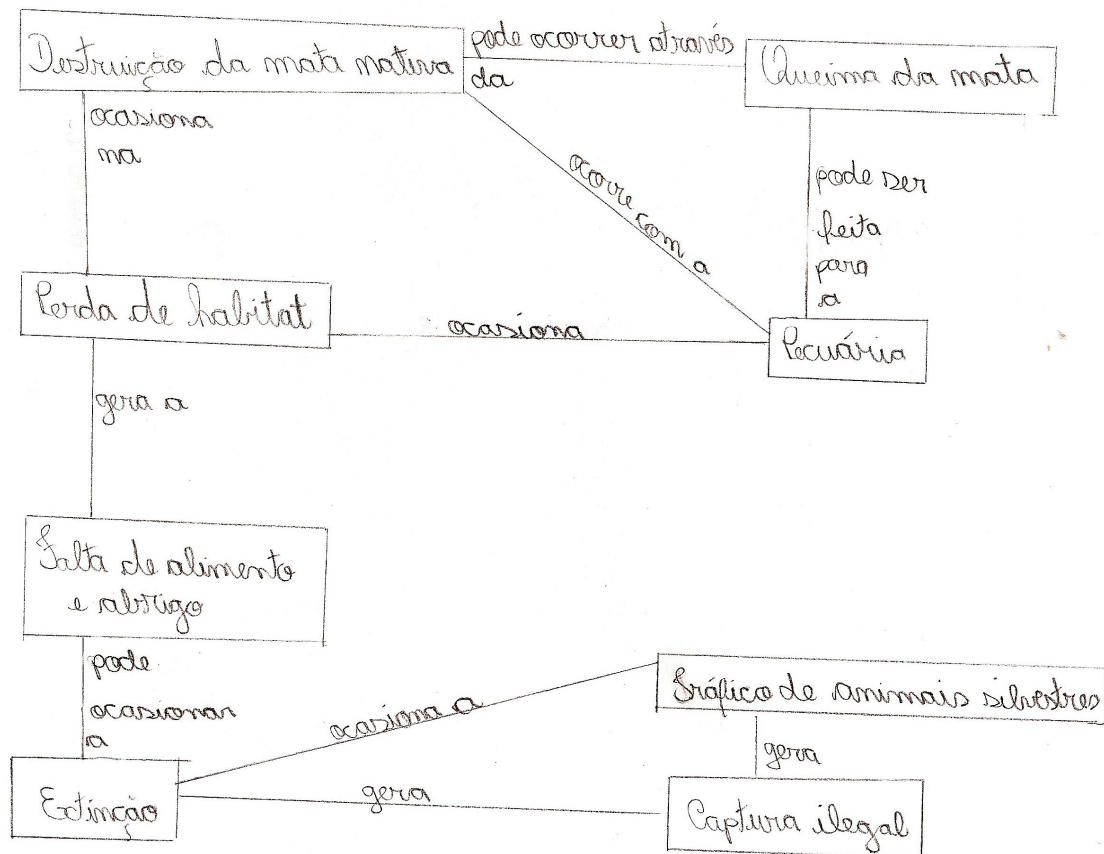 Destruição da mata nativa
pode ocorrer através
da
Queima da mata
ocasiona
na
ocorre com a
pode ser
feita
para
a
Perda de habitat
ocasiona
Pecuária
gera a
Falta de alimento
e abrigo
pode
ocasionar
a
ocasiona a
Tráfico de animais silvestres
gera
Extinção
gera
Captura ilegal